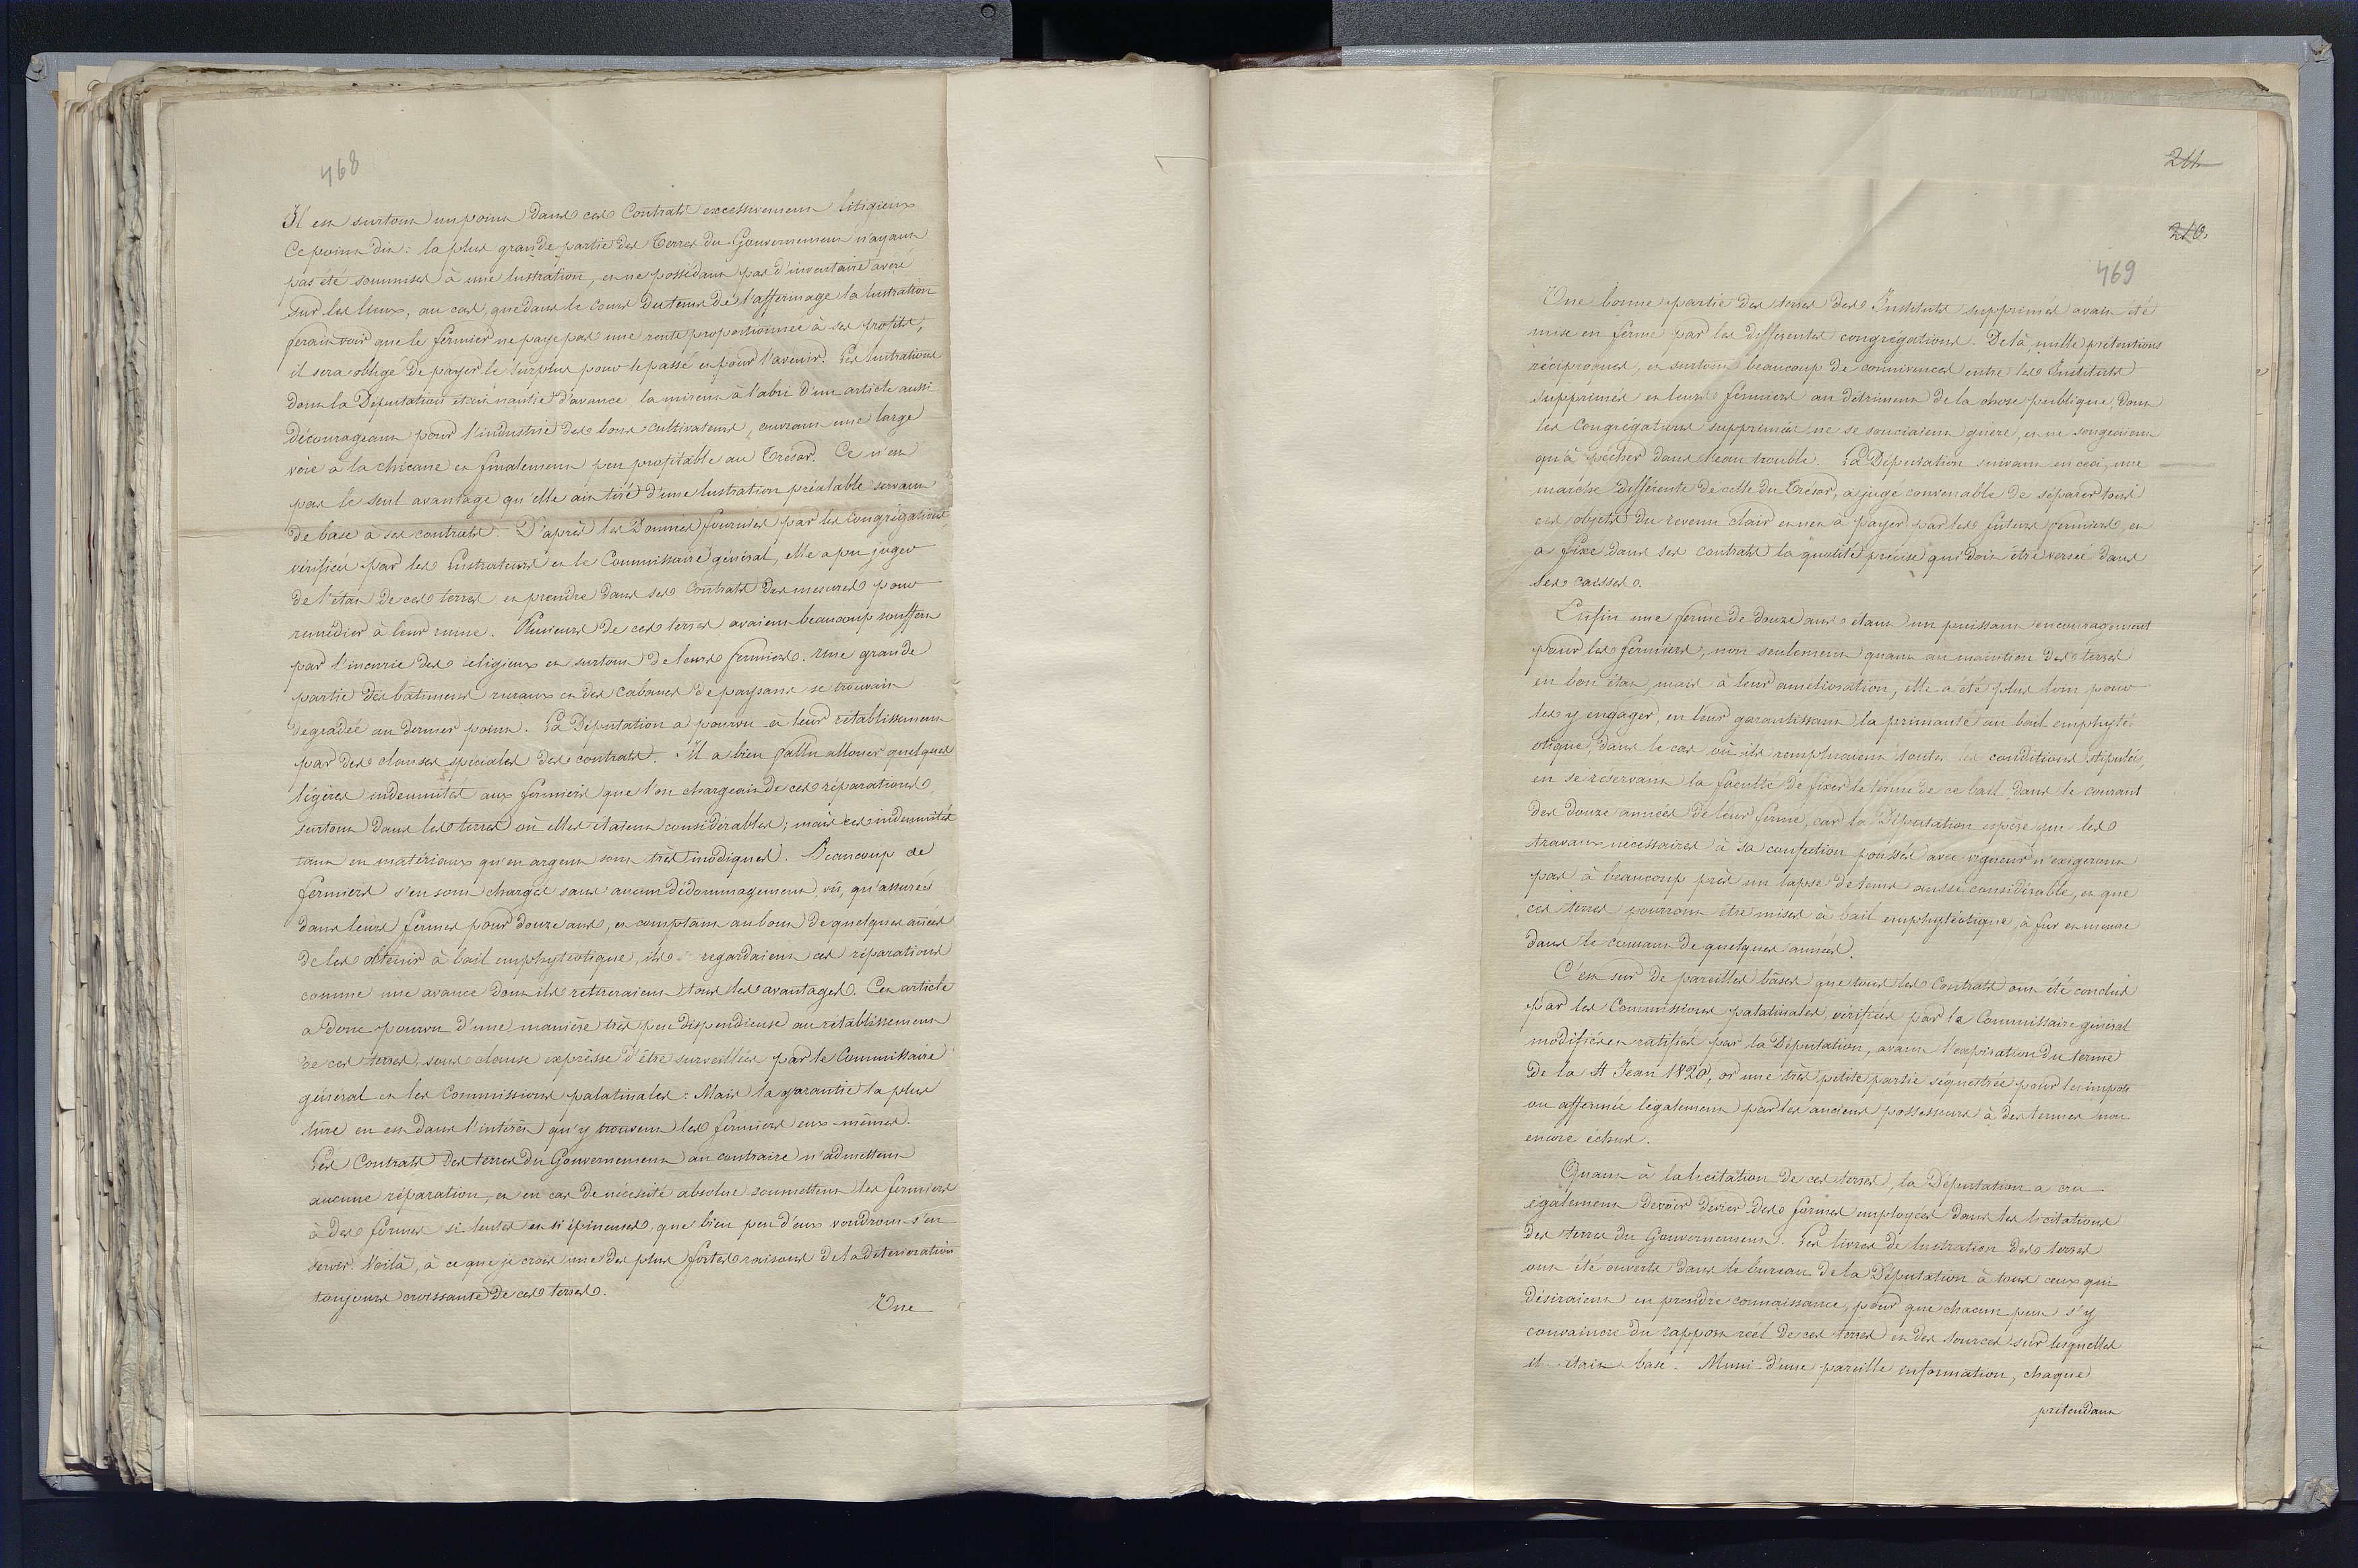 468
Il est surtout un point dans ces Contrats excessivement litigieux
Ce point dit: la plus grande partie des Terres du Gouvernement n'ayant
pas été soumises à une lustration, et ne possédant pas d'inventaire avéré
sur les lieux, au cas, que dans le cours du tems de l'affermage la lustration
ferait voir que le fermier ne paye pas une rente proportionnée à ses profits,
il sera obligé de payer le surplus pour le passé et pour l'avenir. Les lustrations
dont la Députation était nantie d'avance la mirent à l'abri d'un article aussi
décourageant pour l'industrie des bons cultivateurs, ouvrant une large
voie à la chicane et finalement peu profitable au Trésor. Ce n'est
pas le seul avantage qu'elle ait tiré d'une lustration préalable servant
de base à ses contrats. D'après les Données fournies par les Congrégations,
vérifiées par les Lustrateurs et le Commissaire général, elle a pu juger
de l'état de ces terres et prendre dans ses Contrats des mesures pour
remédier à leur ruine. Plusieurs de ces terres avaient beaucoup souffert
par l'incurie des religieux et surtout de leurs fermiers. Une grande
partie des bâtimens ruraux et des cabanes de paysans se trouvait
dégradée au dernier point. La Députation a pourvu à leur rétablissement
par des clauses spéciales des contrats. Il a bien fallu allouer quelques
légères indemnités aux fermiers que l'on chargeait de ces réparations,
surtout dans les terres où elles étaient considérables; mais ces indemnités
tant en matériaux qu'en argent sont très modiques. Beaucoup de
fermiers s'en sont chargés sans aucun dédommagement, vû, qu'assurés
dans leurs fermes pour douze ans, et comptant au bout de quelques années
de les obtenir à bail emphytéotique, ils regardaient ces réparations
comme une avance dont ils retireraient tous les avantages. Cet article
a donc pourvu d'une manière très peu dispendieuse au rétablissement
de ces terres, sous clause expresse d'être surveillées par le Commissaire
général et les Commissions palatinales: Mais la garantie la plus
sûre en est dans l'intérêt qu'y trouvent les fermiers eux-mêmes.
Les Contrats des terres du Gouvernement au contraire n'admettent
aucune réparation, et en cas de nécessité absolue soumettent les fermiers
à des formes si lentes et si épineuses, que bien peu d'eux voudront s'en
servir. Voilà, à ce que je crois une des plus fortes raisons de la détérioration
toujours croissante de ces terres.
Une
211
210.
469
Une bonne partie des terres des Instituts supprimés avait été
mise en ferme par les différentes congrégations. De là mille prétentions
réciproques, et surtout beaucoup de connivences entre les Instituts
supprimés et leurs fermiers au détriment de la chose publique, dont
les Congrégations supprimées ne se souciaient guère, et ne songeaient
qu'à pêcher dans l'eau trouble. La Députation suivant en ceci, une
marche différente de celle du Trésor, a jugé convenable de séparer tous
ces objets du revenu clair et net à payer par les futurs fermiers, et
a fixé dans ses contrats la quotité précise qui doit être versée dans
ses caisses.
Enfin une ferme de douze ans étant un puissant encouragement
pour les fermiers, non seulement quant au maintien des terres
en bon état, mais à leur amélioration, elle a été plus loin pour
les y engager, en leur garantissant la primauté au bail emphyté-
otique, dans le cas où ils rempliraient toutes les conditions stipulées,
en se réservant la faculté de fixer le terme de ce bail dans le courant
des douze années de leur ferme, car la Députation espère que les
travaux nécessaires à sa confection poussés avec vigueur n'exigeront
pas à beaucoup près un lapse de tems aussi considérable, et que
ces terres pourront être mises à bail emphytéotique à fur et mesure
dans le courant de quelques années.
C'est sur de pareilles bases que tous les Contrats ont été conclus
par les Commissions palatinales, vérifiés par le Commissaire général
modifiés et ratifiés par la Députation, avant l'expiration du terme
de la St Jean 1820, or une très petite partie séquestrée pour les impots
ou affermée légalement par les anciens possesseurs à des termes non
encore échus.
Quant à la licitation de ces terres, la Députation a cru
également devoir dévier des formes employées dans les licitations
des terres du Gouvernement. Les livres de lustration des terres
ont été ouverts dans le bureau de la Députation à tous ceux qui
désiraient en prendre connaissance, pour que chacun put s'y
convaincre du rapport réel de ces terres et des sources sur lesquelles
il était basé. Muni d'une pareille information, chaque
prétendant